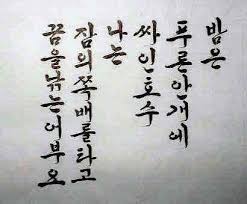 밤은
푸른안개에
싸인호수
나는
잠의쪽배를타고
꿈을낚는어부요